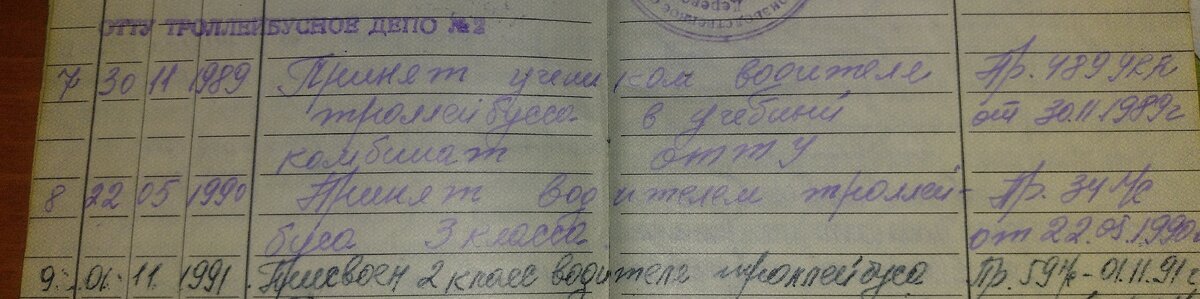 ОТТУ ТРОЛЛЕЙБУСНОЕ ДЕПО №2
7 30 11 1989 Принят учеником водителя Пр. 489
троллейбуса в учебный от 30.11.1989г
комбинат ОТТУ
8 22 05 1990 Принят водителем троллей- Пр. 34
буса 3 класса от 22.05.1990
9. 01. 11. 1991. Присвоен 2 класс водителя троллейбуса Пр. 59 - 01.11.91г